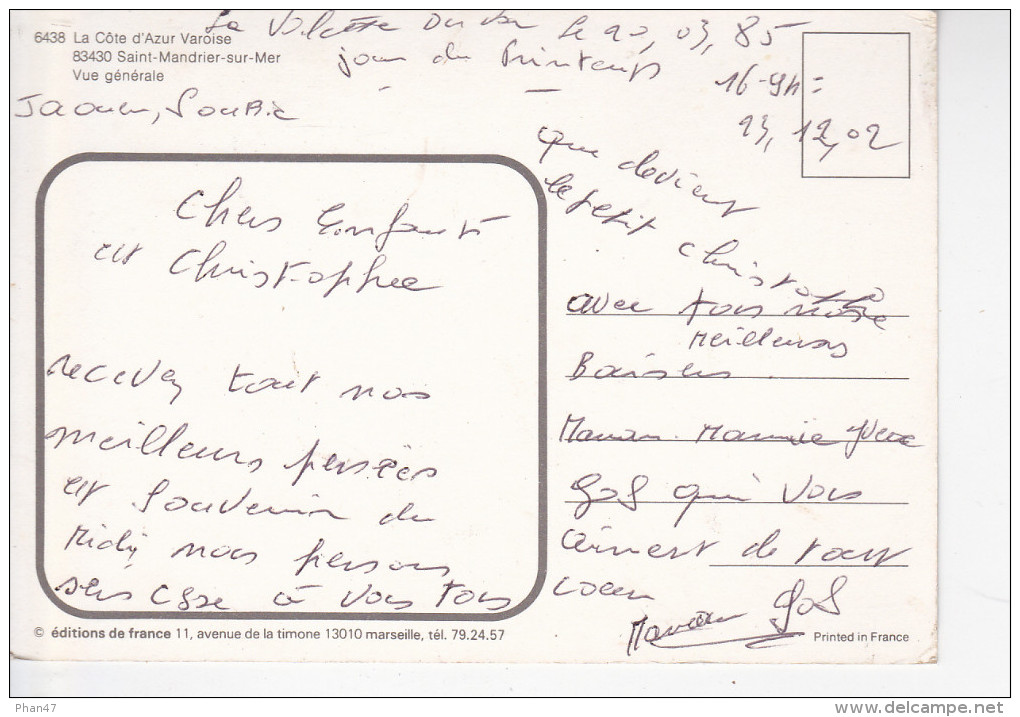 6438 La Côte d'Azur Varoise
83430 Saint-Mandrier-sur-Mer
Vue générale
La Valette du Var le 20, 03, 85
jour du Printemps
16-9h =
23, 12, 02
Chers Enfants
et Christophee
recevez tout nos
meilleurs pensées
et Souvenir du
Midi, nous pensons
sens cesse à vous tous
que devient
le petit Christophe
avec tous notre
Meilleurs
Baisers
Maman. Mamie
Gos qui vous
aiment de tout
coeur
Maman Gos
© éditions de france 11, avenue de la timone 13010 marseille, tél. 79.24.57
Printed in France
Phan47
www.delcampe.net